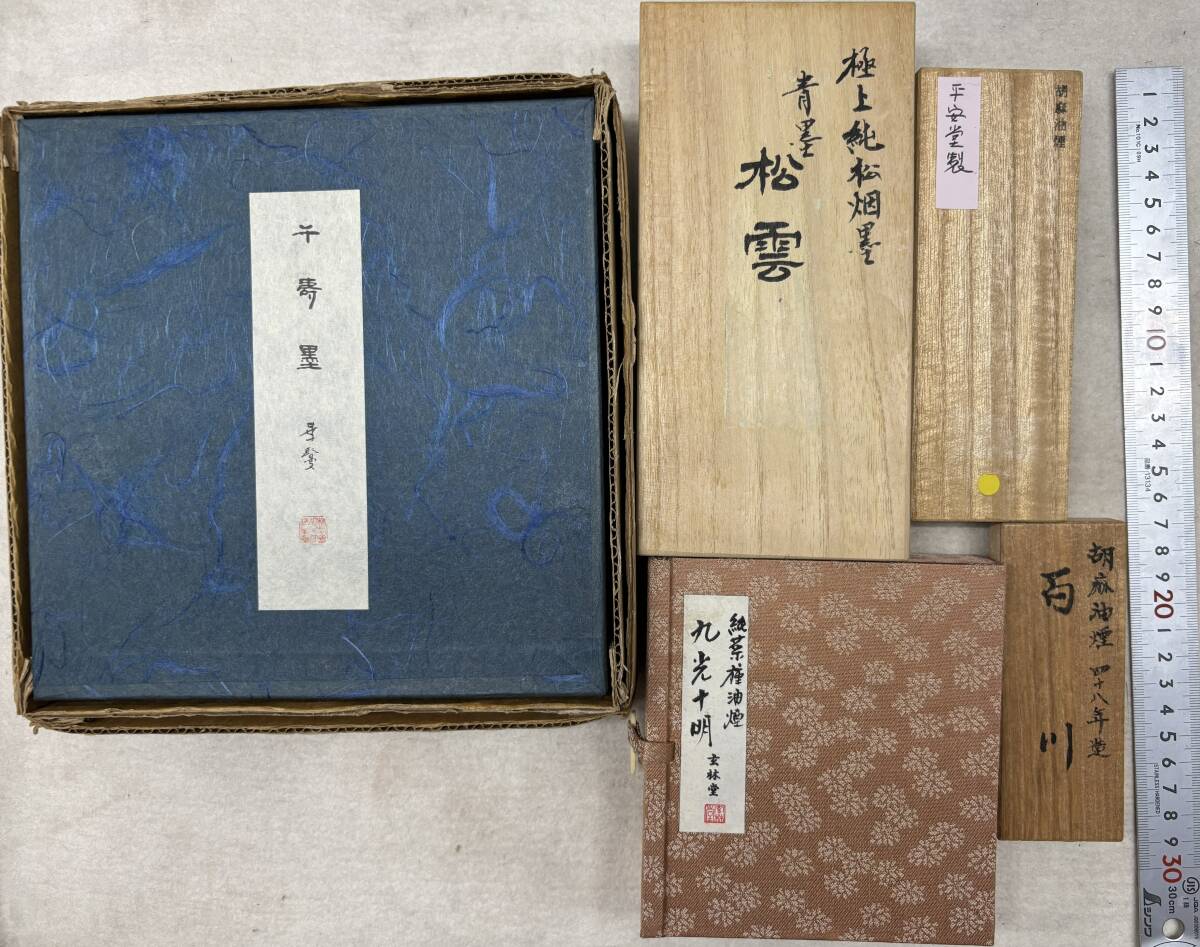 千壽墨
極上純松烟墨
青墨
松雲
胡麻油煙
平安堂製
純菜種油煙
九光十明
玄林堂
胡麻油煙 四十八年造
百川
1 2 3 4 5 6 7 8 9 10 1 2 3 4 5 6 7 8 9 20 1 2 3 4 5 6 7 8 9 30
30cm
JIS
シンワ